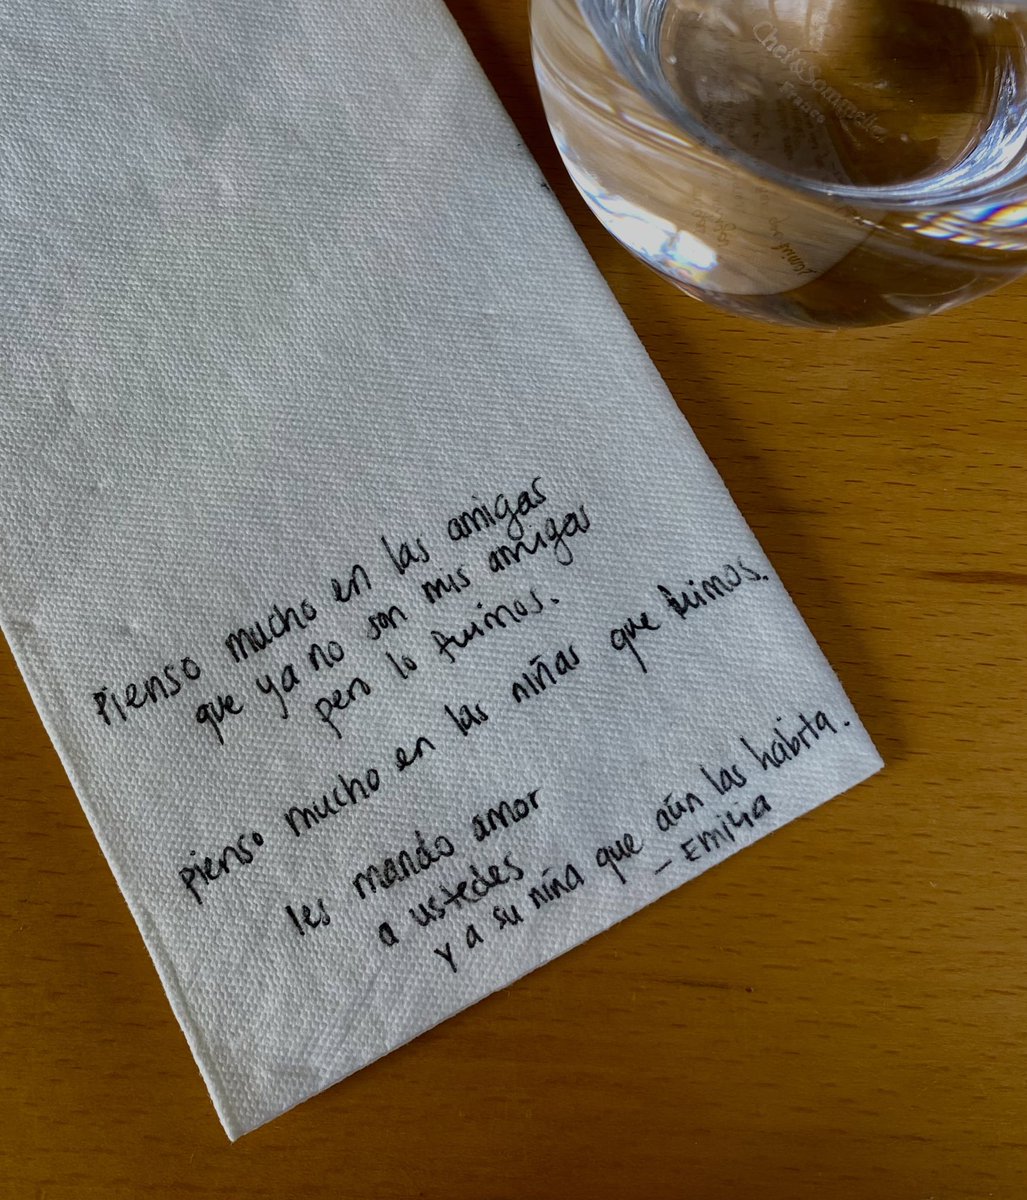 Chef&Sommelier
France
Pienso mucho en las amigas
que ya no son mis amigas
pero lo fuimos.
pienso mucho en las niñas que fuimos.
les mando amor
a ustedes
y a su niña que aún las habita.
— Emilia